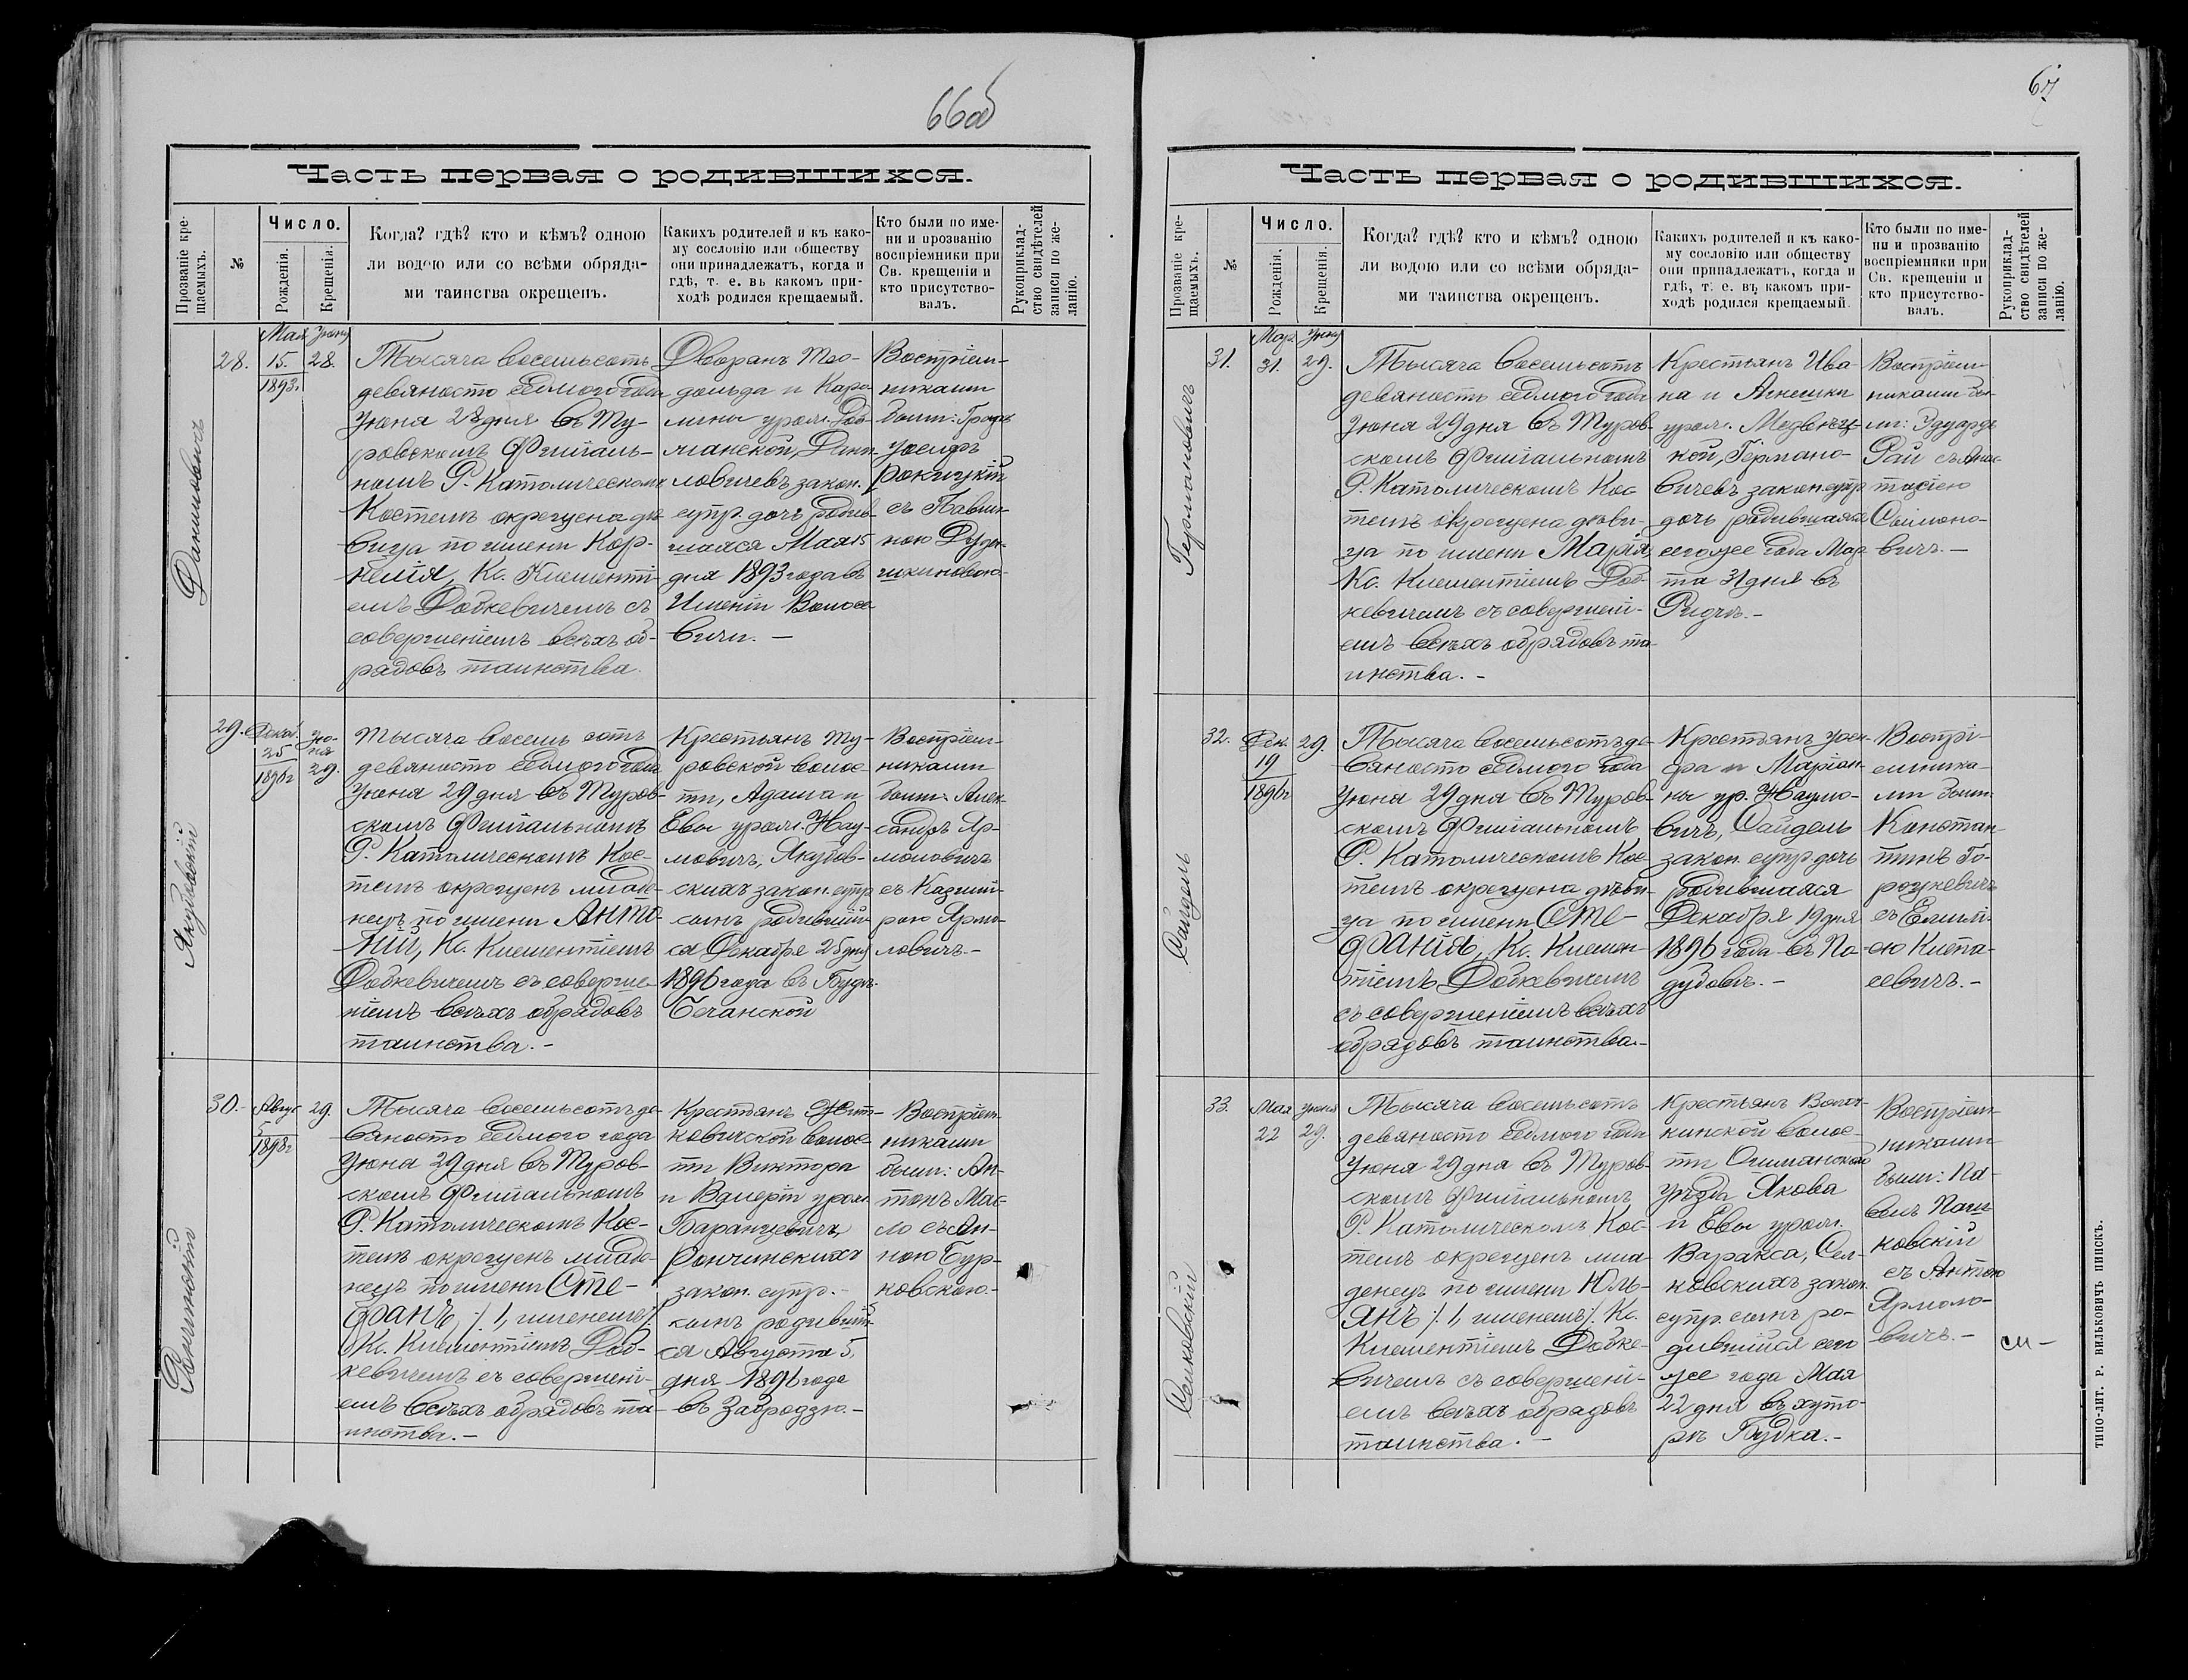 66об
Часть первая о родившихся.
Прозваніе кре-
щаемыхъ.
№
Число.
Рожденія.
Крещенія.
Когда? гдѣ? кто и кѣмъ? одною
ли водою или со всѣми обряда-
ми таинства окрещенъ.
Какихъ родителей и къ како-
му сословію или обществу
они принадлежатъ, когда и
гдѣ, т. е. въ какомъ при-
ходѣ родился крещаемый.
Кто были по име-
ни и прозванію
воспріемники при
Св. крещеніи и
кто присутство-
валъ.
Рукоприклад-
ство свидѣтелей
записи по же-
ланію.
Даниловичъ
28.
Мая
15.
1893г.
Іюня
28.
Тысяча восемьсотъ
девяносто седмого года
Іюня 28 дня въ Ту-
ровскомъ Филіаль-
номъ Р. Католическомъ
Костелѣ окрещена дѣ-
вица по имени Кор-
нелія, Кс. Клементі-
емъ Добкевичемъ съ
совершеніемъ всѣхъ об-
рядовъ таинства.
Дворянъ Тео-
дольда и Каро-
лины урож.
Дани-
ловичевъ закон.
супр. дочь родив-
шаяся Мая 15
дня 1893 года въ
Имѣніи Волосо
вичи. —
Воспріем-
никами
были:
Іосифъ
Рокицкій
съ Павли-
ною
Якубовскій
29.
Декаб.
25
1896г
Ію-
ня
29.
Тысяча восемь сотъ
девяносто седмого года
Іюня 29 дня въ Туров-
скомъ Филіальномъ
Р. Католическомъ Кос-
телѣ окрещенъ младе-
нецъ по имени Анто-
ній, Кс. Клементіемъ
Добкевичемъ съ соверше-
ніемъ всѣхъ обрядовъ
таинства. —
Крестьянъ Ту-
ровской волос-
ти, Адама и
Евы урож. Нау-
мовичъ, Якубов-
скихъ закон. супр.
сынъ родившій-
ся Декабря 25 дня
1896 года въ Будѣ
Бечанской
Воспріем-
никами
были: Алек-
сандръ Яр-
моловичъ
съ Казими-
рою Ярмо-
ловичъ. —
Рончинскій
30.
Авгус
5
1896г
29.
Тысяча восемьсотъ де-
вяносто седмого года
Іюня 29 дня въ Туров-
скомъ Филіальномъ
Р. Католическомъ Кос-
телѣ окрещенъ младе-
нецъ по имени Сте-
фанъ, /:1, именемъ:/
Кс. Клементіемъ Доб-
кевичемъ съ совершені-
емъ всѣхъ обрядовъ та-
инства. —
Крестьянъ Жит-
ковичской волос-
ти Виктора
и Валеріи урож.
Баранцевичъ,
Рончинскихъ
закон. супр. —
сынъ родившій-
ся Августа 5
дня 1896 года
въ Забродзю. —
Воспріем-
никами
были: Ан-
тонъ Мас-
ло съ Ан-
ною Бур-
ковскою. —
67
Часть первая о родившихся.
Прозваніе кре-
щаемыхъ.
№
Число.
Рожденія.
Крещенія.
Когда? гдѣ? кто и кѣмъ? одною
ли водою или со всѣми обряда-
ми таинства окрещенъ.
Какихъ родителей и къ како-
му сословію или обществу
они принадлежатъ, когда и
гдѣ, т. е. въ какомъ при-
ходѣ родился крещаемый.
Кто были по име-
ни и прозванію
воспріемники при
Св. крещеніи и
кто присутство-
валъ.
Рукоприклад-
ство свидѣтелей
записи по же-
ланію.
Германовичъ
31.
Мар.
31.
Іюня
29.
Тысяча восемьсотъ
девяносто седмого года
Іюня 29 дня въ Туров-
скомъ Филіальномъ
Р. Католическомъ Кос-
телѣ окрещена дѣви-
ца по имени Марія,
Кс. Клементіемъ Доб-
кевичемъ съ совершені-
емъ всѣхъ обрядовъ та-
инства. —
Крестьянъ Ива-
на и Агнешки
урож.
Германо-
вичевъ закон. супр.
дочь родившаяся
сего же года Мар-
та 31 дня въ
Ридчѣ. —
Воспріем-
никами бы-
ли: Эдуардъ
Рай съ Анас-
тасіею
Симоно-
вичъ. —
Сайдель
32.
Дек.
19
1896г
29.
Тысяча восемьсотъ де-
вяносто седмого года
Іюня 29 дня въ Туров-
скомъ Филіальномъ
Р. Католическомъ Кос-
телѣ окрещена дѣви-
ца по имени Сте-
фанія, Кс. Клемен-
тіемъ Добкевичемъ
съ совершеніемъ всѣхъ
обрядовъ таинства. —
Крестьянъ Іоси-
фа и Маріан-
ны ур. Наумо-
вичъ, Сайдель
закон. супр. дочь
родившаяся
Декабря 19 дня
1896 года въ По-
дубовѣ. —
Воспрі-
емника-
ми были:
Констан-
тинъ Го-
рошкевичъ
съ Емилі-
ею
севичъ. —
Селковскій
33.
Мая
22
Іюня
29.
Тысяча восемьсотъ
девяносто седмого года
Іюня 29 дня въ Туров-
скомъ Филіальномъ
Р. Католическомъ Кос-
телѣ окрещенъ мла-
денецъ по имени Юль-
янъ /:1, именемъ:/ Кс.
Клементіемъ Добке-
вичемъ съ совершені-
емъ всѣхъ обрядовъ
таинства. —
Крестьянъ
волос-
ти Ошмянской
уѣзда Якова
и Евы урож.
Варакса, Сел-
ковскихъ закон.
супр. сынъ ро-
дившійся сего
же года Мая
22 дня въ хуто-
рѣ Будка. —
Воспріем-
никами
были: Па-
велъ Паш-
ковскій
съ Антон
Ярмоло-
вичъ. —
ТИПО-ЛИТ. Р. ВИЛЬКОВИЧЪ ПИНСКЪ.